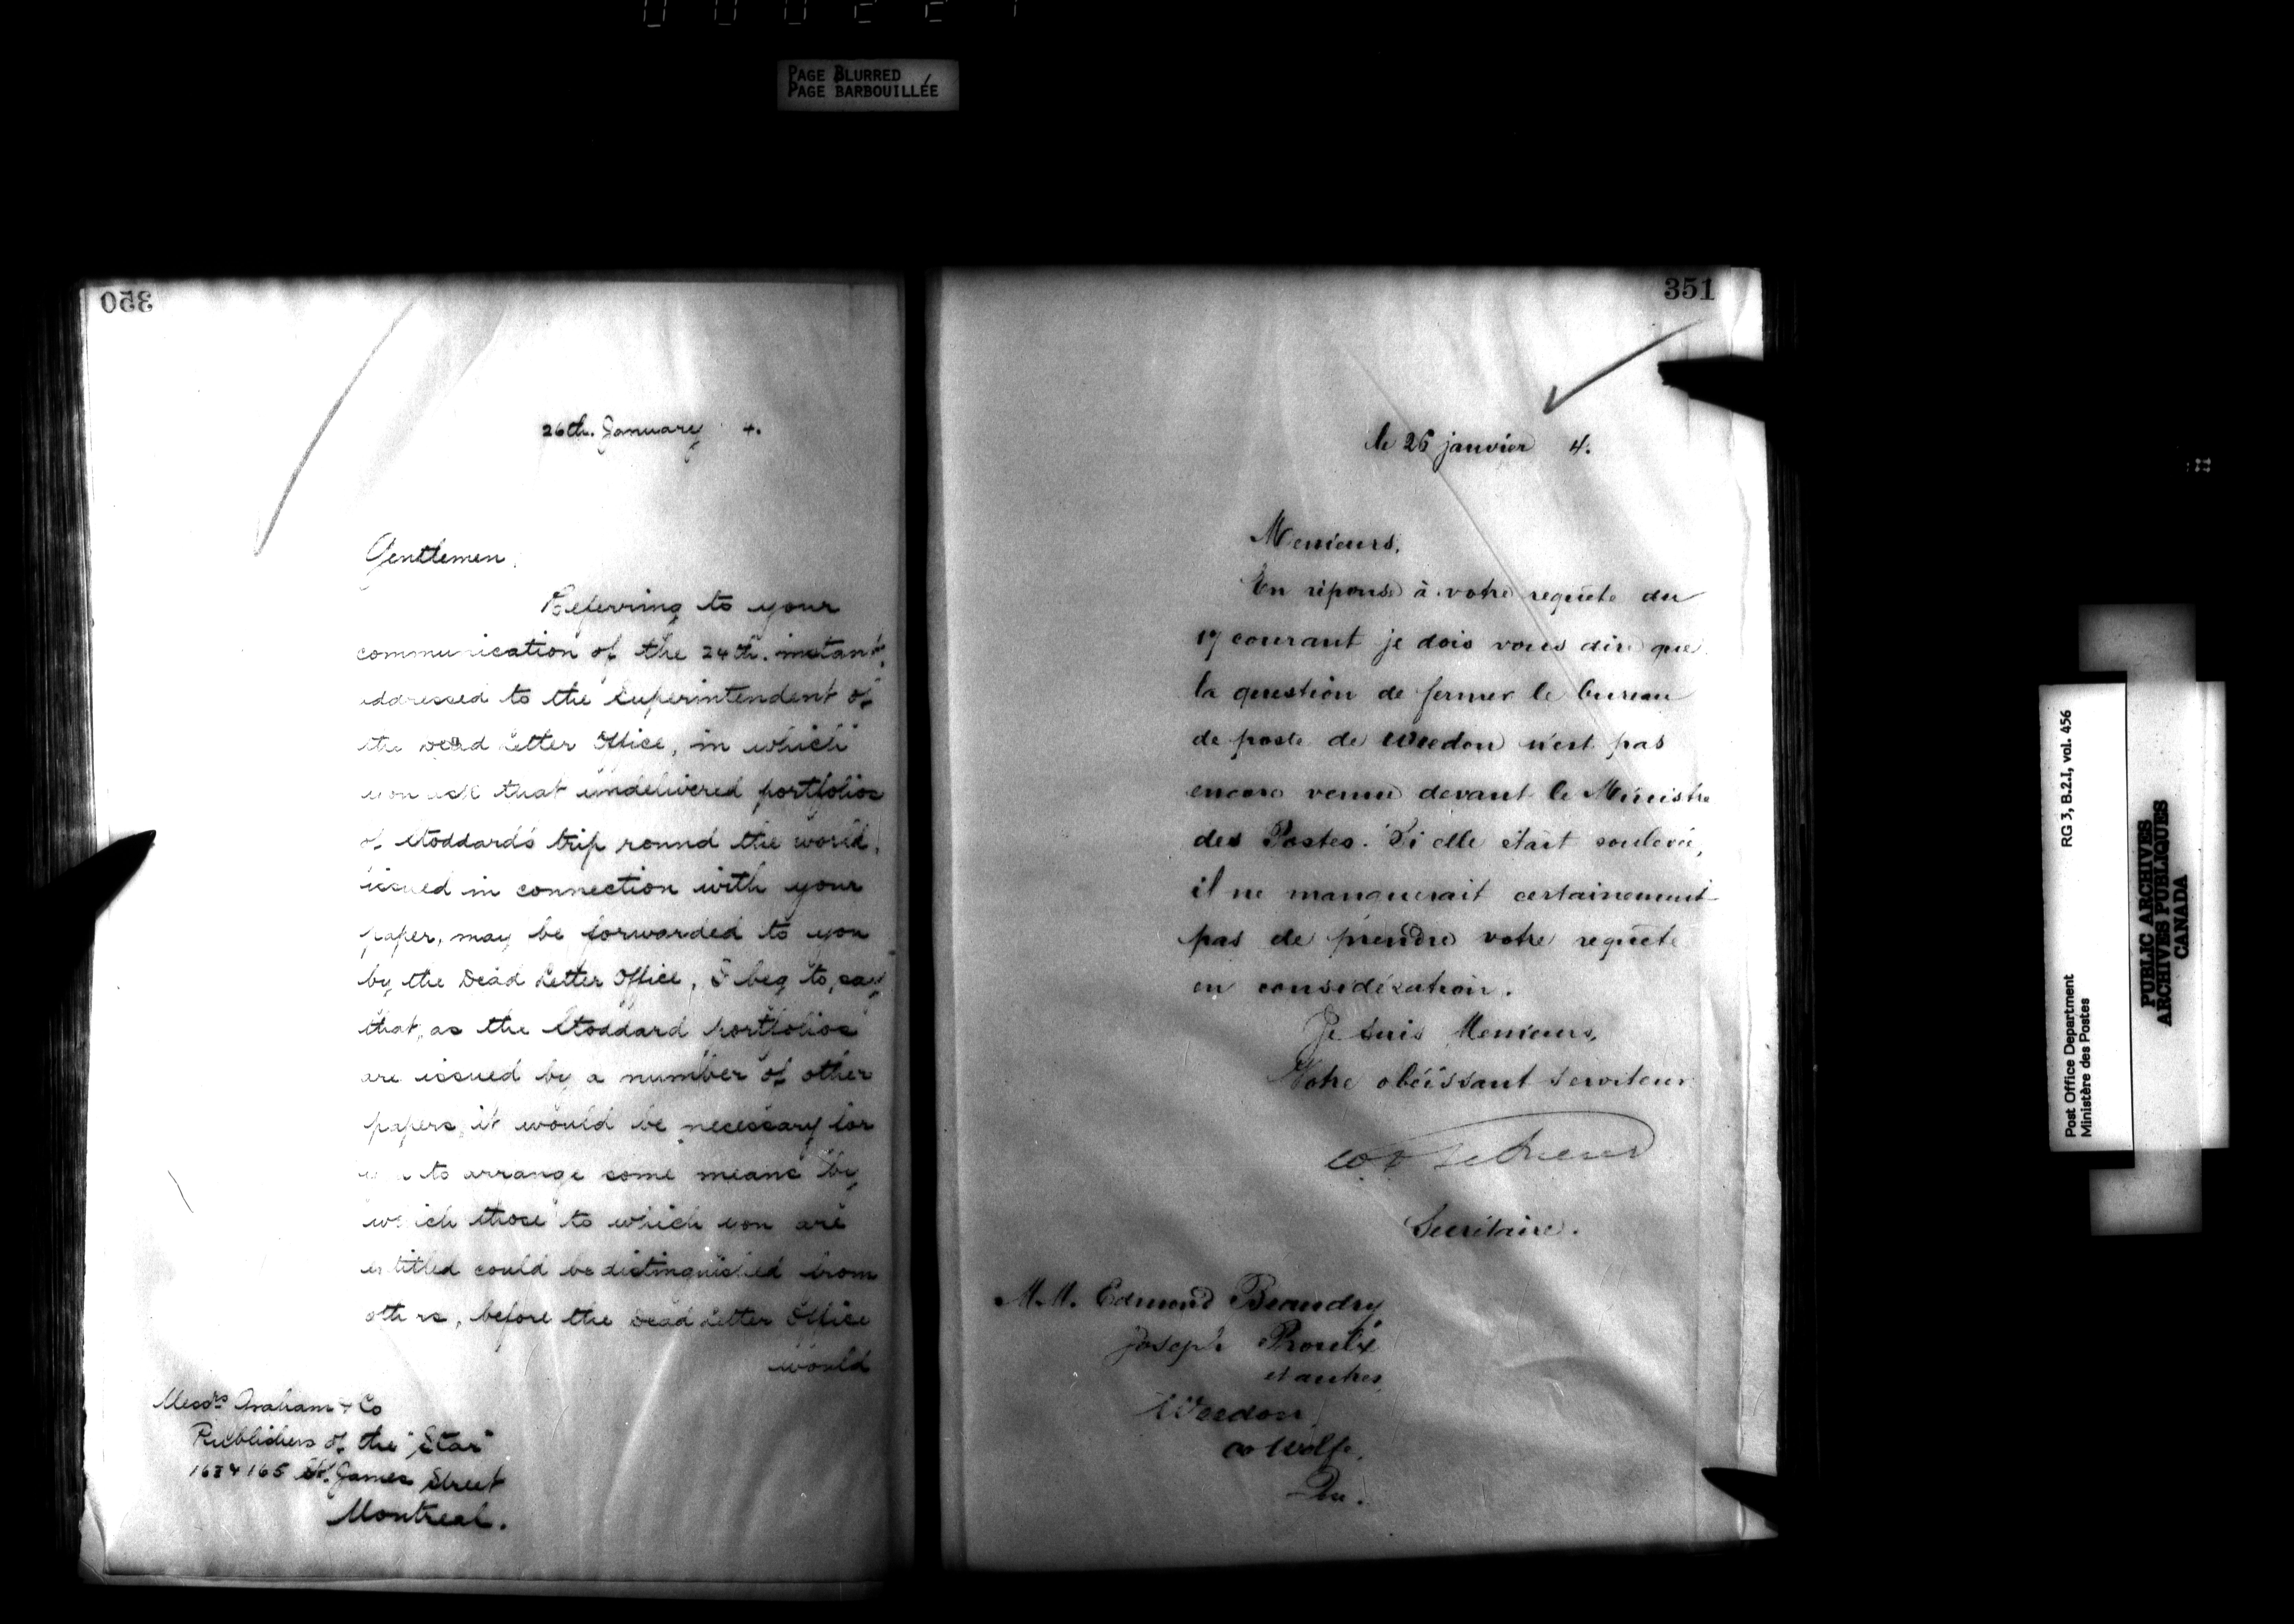 PAGE BLURRED
PAGE BARBOUILLÉE
350
26th. January 4.
Gentlemen,
Referring to your
communication of the 24th. instant,
addressed to the Superintendent of
the Dead Letter Office, in which
you ask that undelivered portfolios
of Stoddard's trip round the world,
issued in connection with your
paper, may be forwarded to you
by the Dead Letter Office, I beg to say
that, as the Stoddard portfolios
are issued by a number of other
papers, it would be necessary for
you to arrange some means by
which those to which you are
entitled could be distinguished from
others, before the Dead Letter Office
would
Messrs Graham & Co
Publishers of the "Star"
163 & 165 St. James Street
Montreal.
351
le 26 janvier 4.
Messieurs,
En réponse à votre requête du
17 courant je dois vous dire que
la question de fermer le bureau
de poste de Weedon n'est pas
encore venue devant le Ministre
des Postes. Si elle était soulevée,
il ne manquerait certainement
pas de prendre votre requête
en considération.
Je suis Messieurs,
Votre obéissant serviteur
Secrétaire.
M.M. Edmond Beaudry
Joseph Proulx
et autres
Weedon
Co Wolfe,
Que.
RG 3, B.2.I, vol. 456
Post Office Department
Ministère des Postes
PUBLIC ARCHIVES
ARCHIVES PUBLIQUES
CANADA